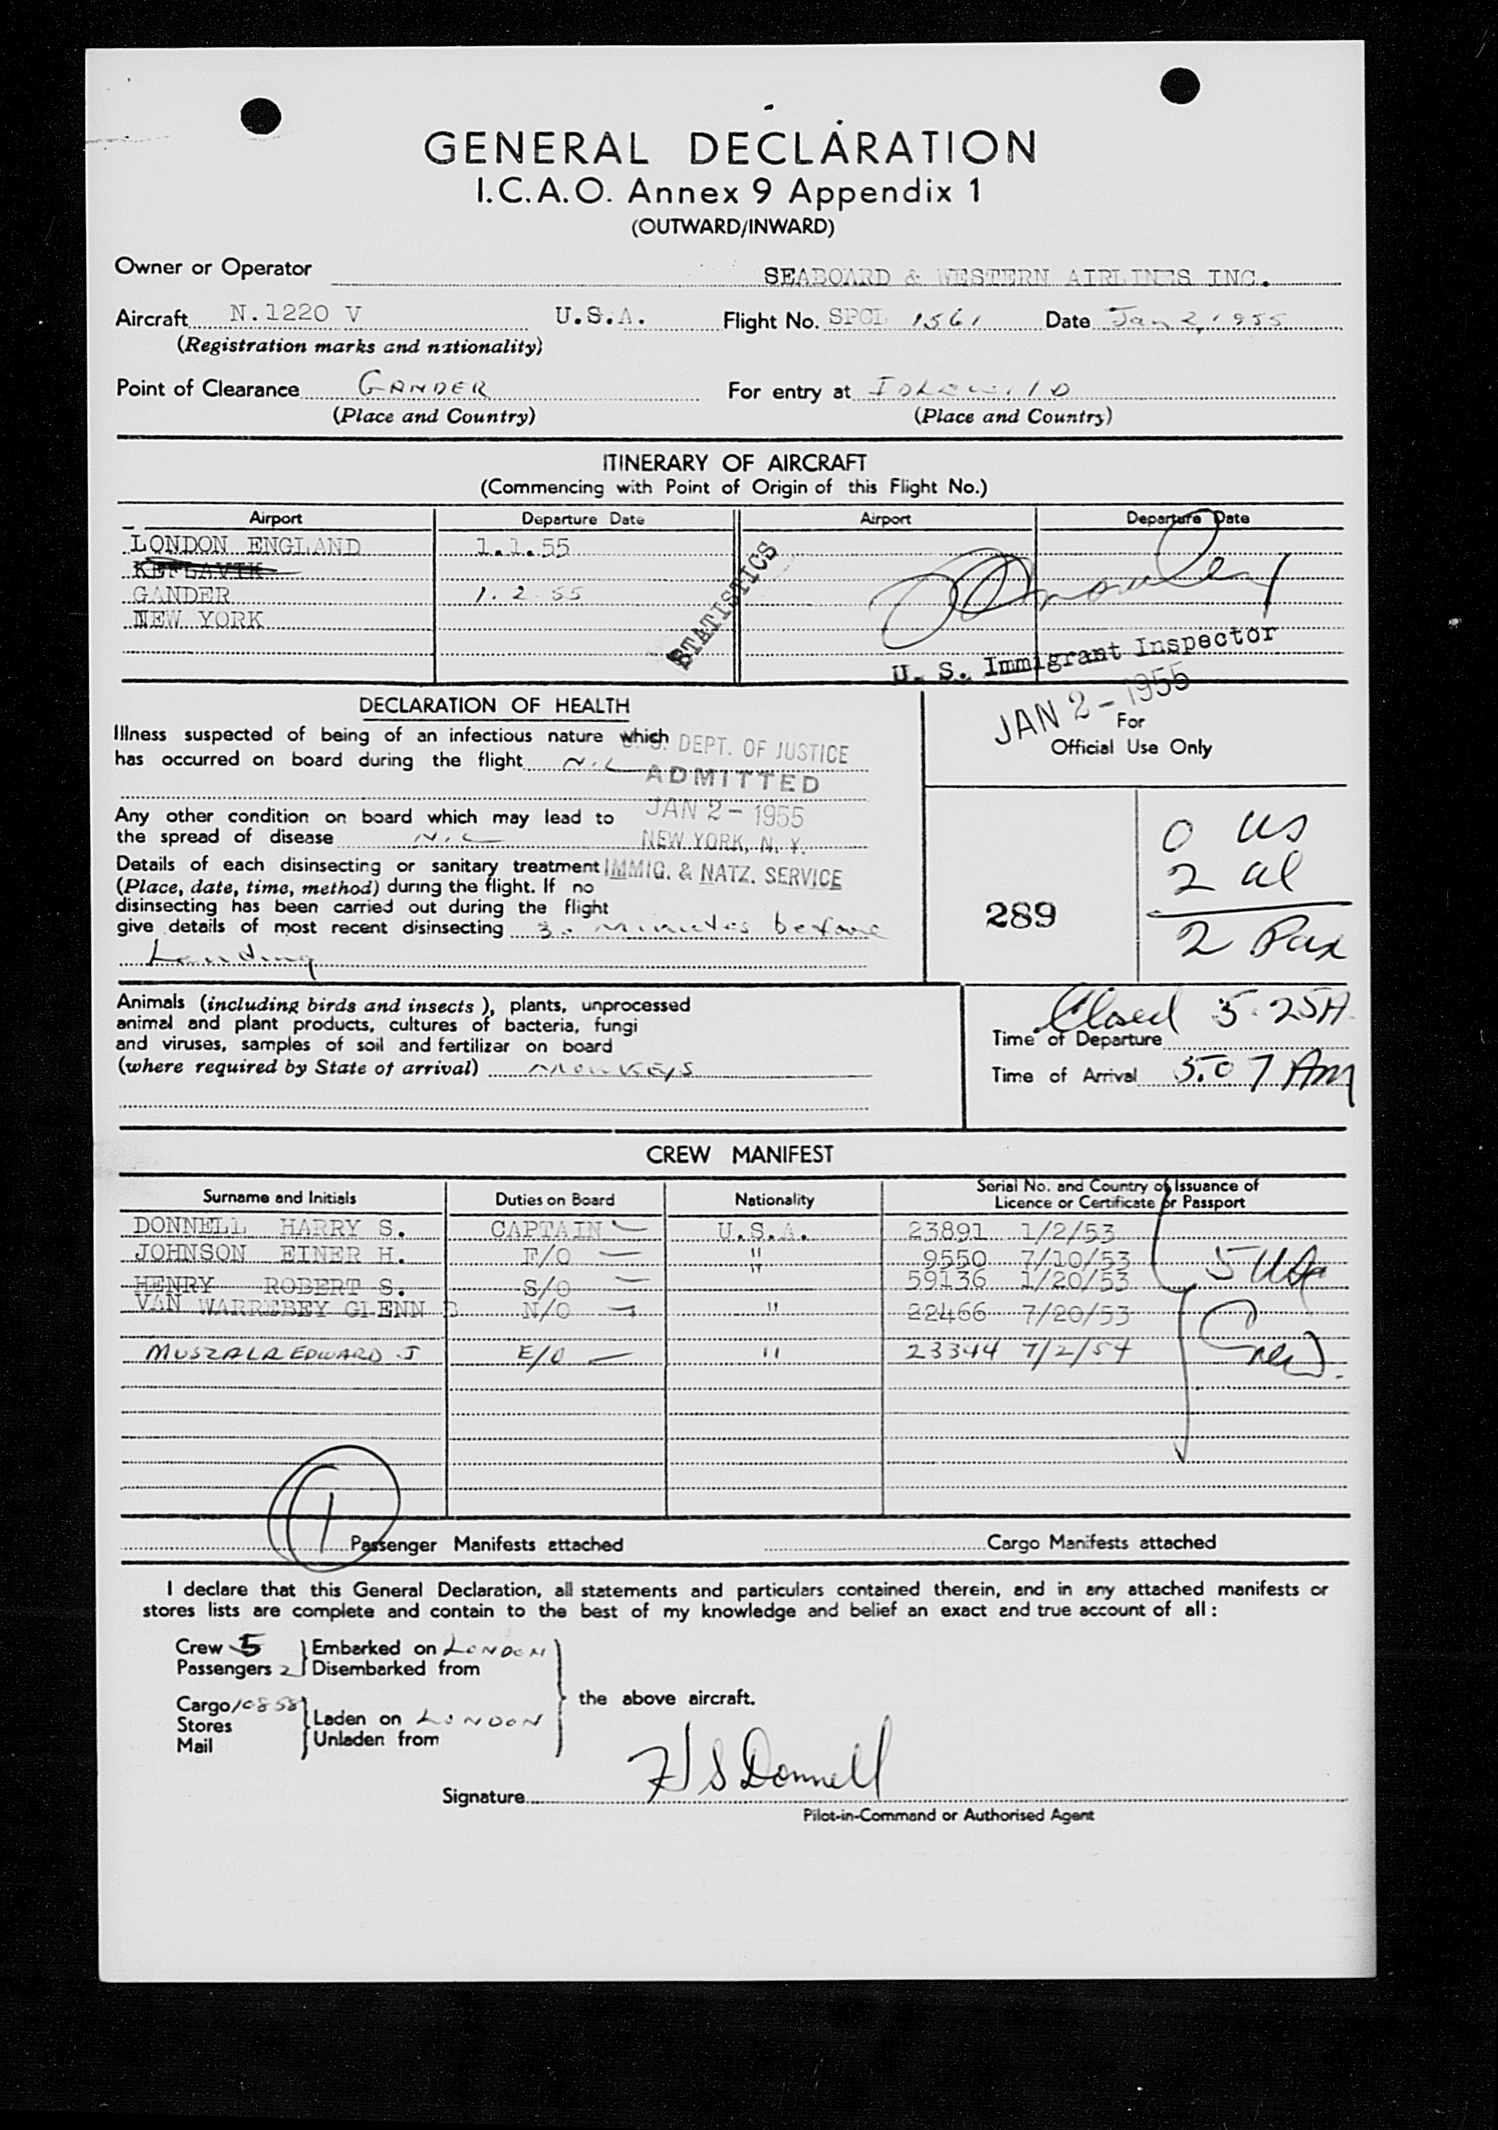 GENERAL DECLARATION
I.C.A.O. Annex 9 Appendix 1
(OUTWARD/INWARD)
Owner or Operator SEABOARD & WESTERN AIRLINES INC.
Aircraft N.1220 V U.S.A. Flight No. SPCL 1561 Date Jan 2, 1955
(Registration marks and nationality)
Point of Clearance GANDER For entry at IDLEWILD
(Place and Country) (Place and Country)
ITINERARY OF AIRCRAFT
(Commencing with Point of Origin of this Flight No.)
Airport Departure Date Airport Departure Date
LONDON ENGLAND 1.1.55
KEFLAVIK
GANDER 1.2.55
NEW YORK
STATISTICS
U. S. Immigrant Inspector
JAN 2 - 1955
DECLARATION OF HEALTH
For
Official Use Only
Illness suspected of being of an infectious nature which
has occurred on board during the flight NIL
U. S. DEPT. OF JUSTICE
ADMITTED
JAN 2 - 1955
NEW YORK, N. Y.
IMMIG. & NATZ. SERVICE
Any other condition on board which may lead to
the spread of disease NIL
Details of each disinsecting or sanitary treatment
(Place, date, time, method) during the flight. If no
disinsecting has been carried out during the flight
give details of most recent disinsecting 30 minutes before
Landing
289
0 US
2 al
2 Pax
Animals (including birds and insects), plants, unprocessed
animal and plant products, cultures of bacteria, fungi
and viruses, samples of soil and fertilizer on board
(where required by State of arrival) MONKEYS
Closed 5.25A
Time of Departure
Time of Arrival 5.07 AM
CREW MANIFEST
Surname and Initials Duties on Board Nationality Serial No. and Country of Issuance of
Licence or Certificate or Passport
DONNELL HARRY S. CAPTAIN U.S.A. 23891 1/2/53
JOHNSON EINER H. F/O " 9550 7/10/53
HENRY ROBERT S. S/O " 59136 1/20/53
VAN WARREBEY GLENN B N/O " 22466 7/20/53
MUSZALA EDWARD J E/O " 23344 7/2/54
5 USA
Crew
1 Passenger Manifests attached Cargo Manifests attached
I declare that this General Declaration, all statements and particulars contained therein, and in any attached manifests or
stores lists are complete and contain to the best of my knowledge and belief an exact and true account of all :
Crew 5 Embarked on LONDON
Passengers 2 Disembarked from
the above aircraft.
Cargo 10858
Stores Laden on LONDON
Mail Unladen from
Signature H S Donnell
Pilot-in-Command or Authorised Agent